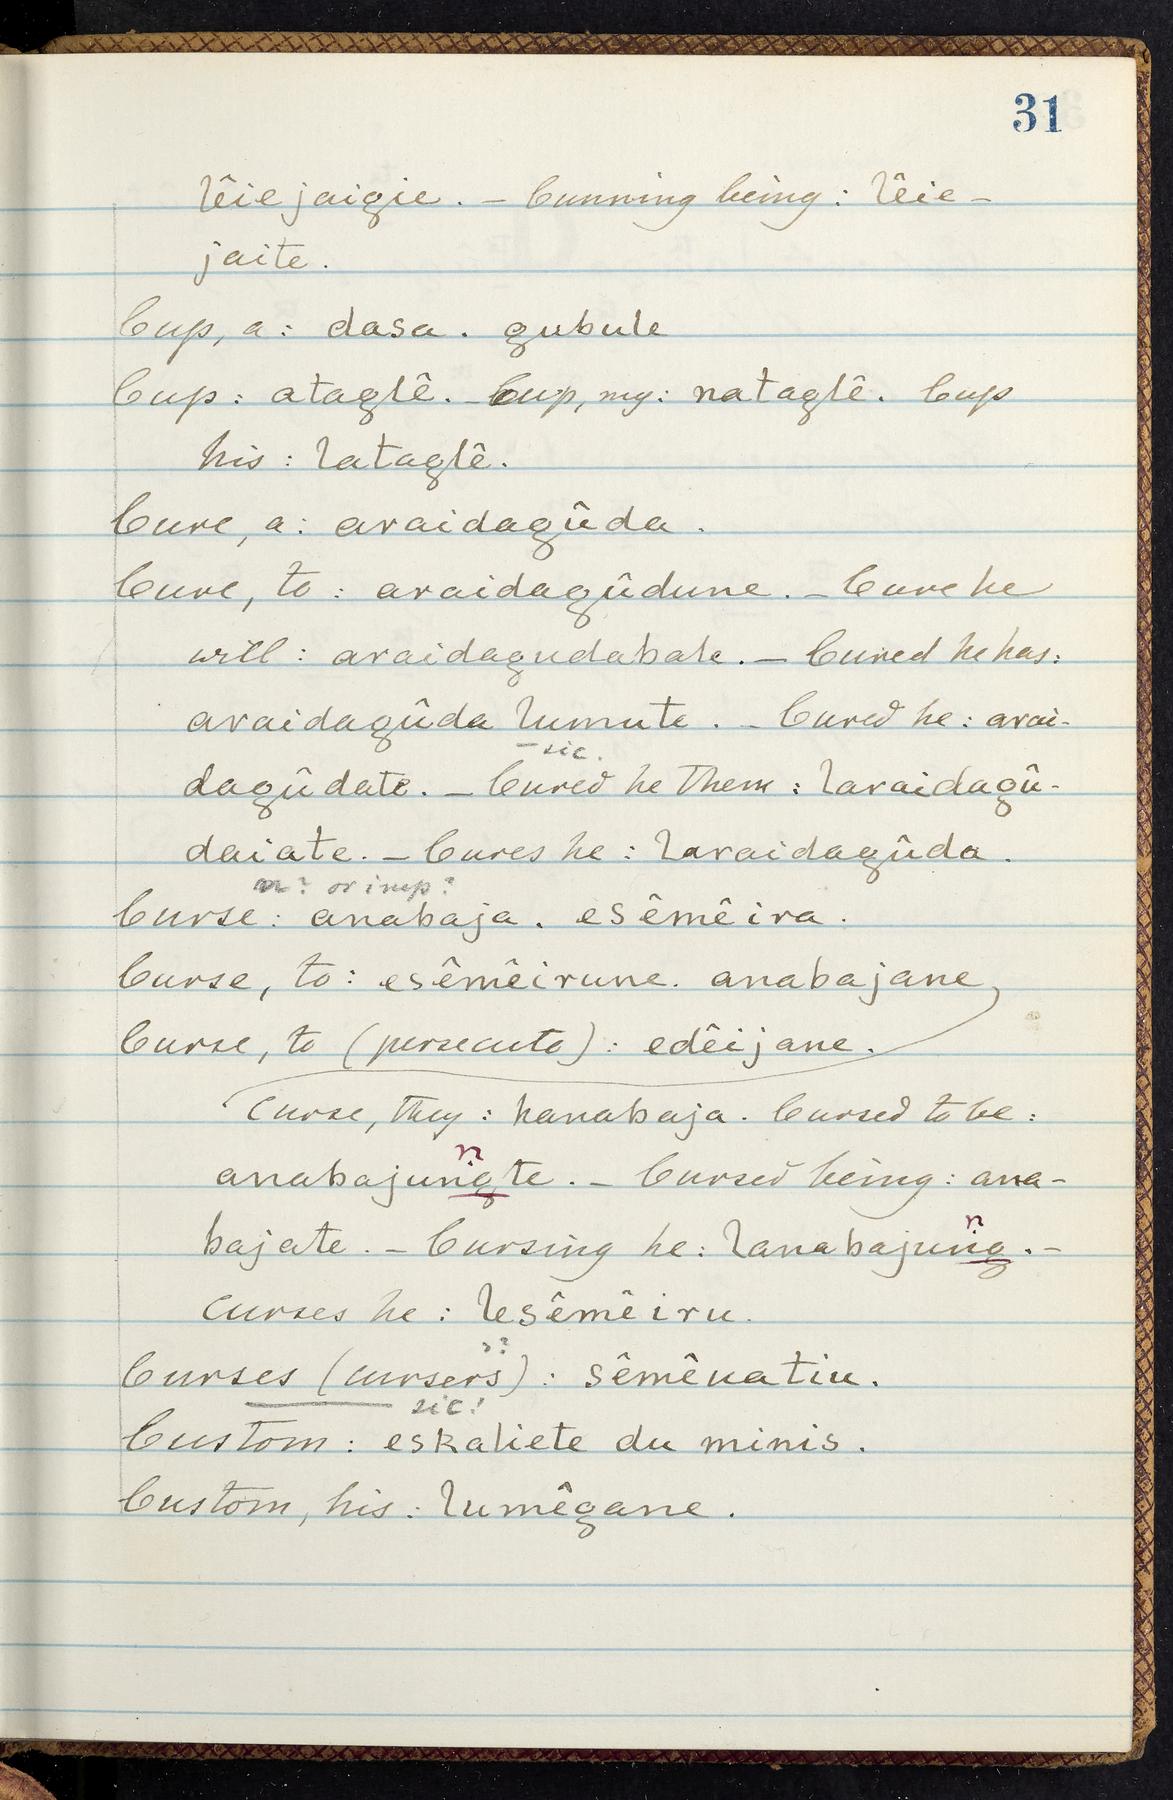 31
lêiejaigie. – Cunning being: lêie-
jaite.
Cup, a: dasa. gubule
Cup: ataglê. – Cup, my: nataglê. Cup
his: lataglê.
Cure, a: araidagûda.
Cure, to: araidagûdune. – Cure he
will: araidagudabale. – Cured he has:
araidagûda lumute. – Cured he: arai-
– sic.
dagûdate. – Cured he them: laraidagû-
daiate. – Cures he: laraidagûda.
n? or imp?
Curse: anabaja. esêmêira.
Curse, to: esêmêirune. anabajane
Curse, to (persecute): edêijane.
Curse, they: hanabaja. Cursed to be:
n
anabajungte. – Cursed being: ana-
n
bajate. – Cursing he: lanabajung. –
Curses he: lesêmêiru.
s?
Curses (cursers): sêmêuatiu.
sic!
Custom: eskaliete du minis.
Custom, his: lumêgane.